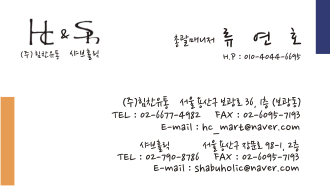 HC & Sh
(주)힘찬유통 샤브홀릭
총괄매니저 류연호
H.P : 010-4044-6695
(주)힘찬유통 서울 용산구 보광로 36, 1층 (보광동)
TEL : 02-6677-4982 FAX : 02-6095-7193
E-mail : hc_mart@naver.com
샤브홀릭 서울 용산구 장문로 98-1, 2층
TEL : 02-790-8786 FAX : 02-6095-7193
E-mail : shabuholic@naver.com